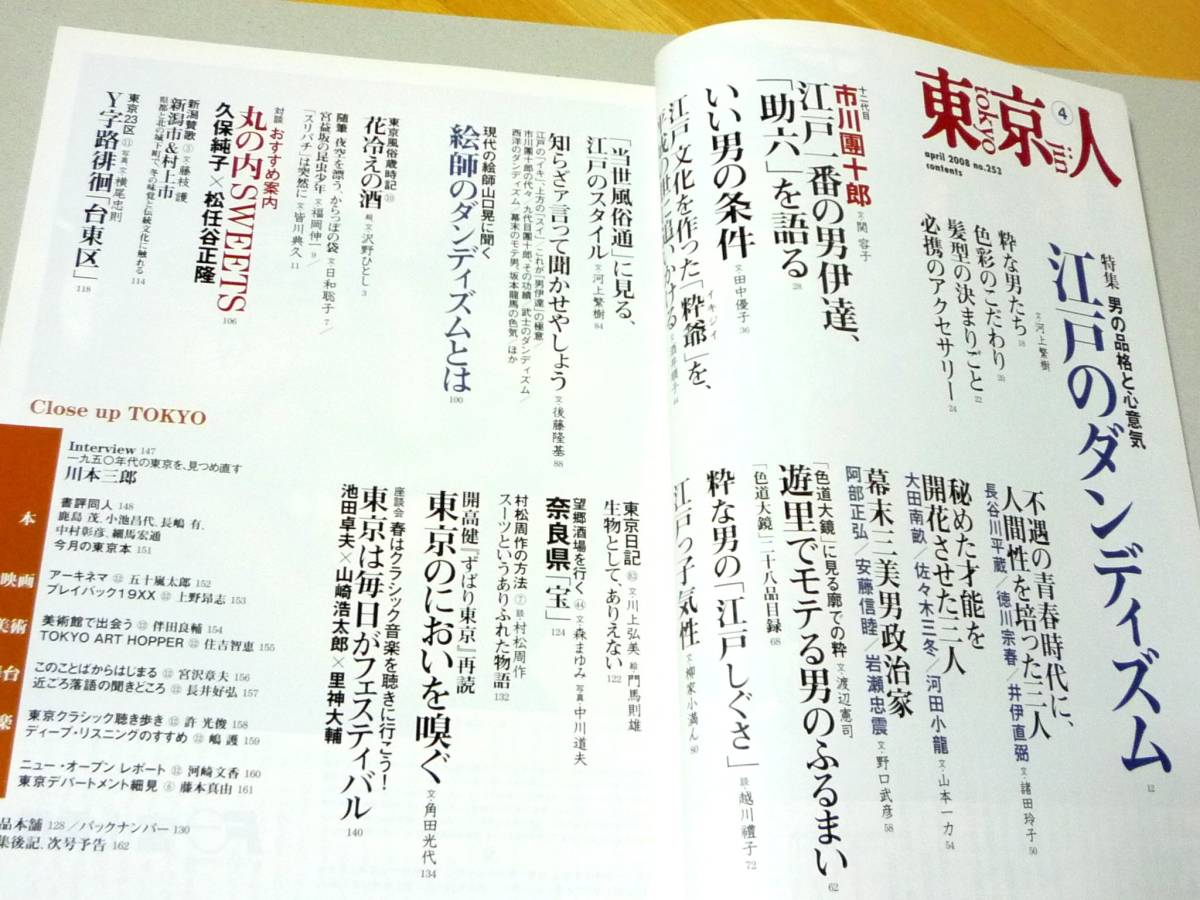 東京人
tokyo jin
④
april 2008 no.252
contents
特集 男の品格と心意気
江戸のダンディズム 12
粋な男たち 18
文・河上繁樹
色彩のこだわり 20
髪型の決まりごと 22
必携のアクセサリー 24
不遇の青春時代に、
人間性を培った三人
長谷川平蔵／徳川宗春／井伊直弼 文・諸田玲子 50
秘めた才能を
開花させた三人
大田南畝／佐々木三冬／河田小龍 文・山本一力 54
幕末三美男政治家
阿部正弘／安藤信睦／岩瀬忠震 文・野口武彦 58
「色道大鏡」に見る廓での粋 文・渡辺憲司
遊里でモテる男のふるまい 62
「色道大鏡」二十八品目録 68
粋な男の「江戸しぐさ」 談・越川禮子 72
江戸っ子気性 文・柳家小満ん 80
十二代目
市川團十郎 文・関 容子
江戸一番の男伊達、
「助六」を語る 28
いい男の条件 文・田中優子 36
江戸文化を作った「粋爺」を、
イキジイ
平成の世に追いかける 44
「当世風俗通」に見る、
江戸のスタイル 文・河上繁樹 84
知らざァ言って聞かせやしょう 文・後藤隆基 88
江戸の「イキ」、上方の「スイ」／これが「男伊達」の極意／
市川團十郎の代々／九代目團十郎、その功績／武士のダンディズム／
西洋のダンディズム／幕末のモテ男、坂本龍馬の色気／ほか
現代の絵師山口晃に聞く
絵師のダンディズムとは 100
東京風俗歳時記⑩
花冷えの酒 絵・沢野ひとし 3
随筆 夜空を漂う、からっぽの袋 文・日和聡子 7／
宮益坂の昆虫少年 文・福岡伸一 9／
「スリバチ」は突然に 文・皆川典久 11
対談 おすすめ案内
丸の内SWEETS
久保純子×松任谷正隆 106
新潟賛歌③ 文・藤枝 護
新潟市&村上市
県都と北の城下町で、冬の味覚と伝統文化に触れる 114
東京23区⑪ 写真・文・横尾忠則
Y字路徘徊「台東区」 118
東京日記㊼ 文・川上弘美 絵・門馬則雄
生物として、ありえない 122
望郷酒場を行く㊹ 文・森まゆみ 写真・中川道夫
奈良県「宝」 124
村松周作の方法⑦ 談・村松周作
スーツというありふれた物語 132
開高健『ずばり東京』再読
東京のにおいを嗅ぐ 文・角田光代 134
座談会 春はクラシック音楽を聴きに行こう!
東京は毎日がフェスティバル
池田卓夫×山崎浩太郎×里神大輔 140
Close up TOKYO
本
Interview 147
一九五〇年代の東京を、見つめ直す
川本三郎
書評同人 148
鹿島 茂、小池昌代、長嶋 有、
中村彰彦、細馬宏通
今月の東京本 151
映画
アーキネマ ⑫ 五十嵐太郎 152
プレイバック19XX ⑫ 上野昻志 153
美術
美術館で出会う ⑫ 伴田良輔 154
TOKYO ART HOPPER ⑫ 住吉智恵 155
台
このことばからはじまる ⑫ 宮沢章夫 156
近ごろ落語の聞きどころ ⑫ 長井好弘 157
楽
東京クラシック聴き歩き ⑫ 許 光俊 158
ディープ・リスニングのすすめ ⑫ 嶋 護 159
ニュー・オープン レポート ⑫ 河崎文香 160
東京デパートメント細見 ⑥ 藤本真由 161
品本舗 128／バックナンバー 130
集後記、次号予告 162